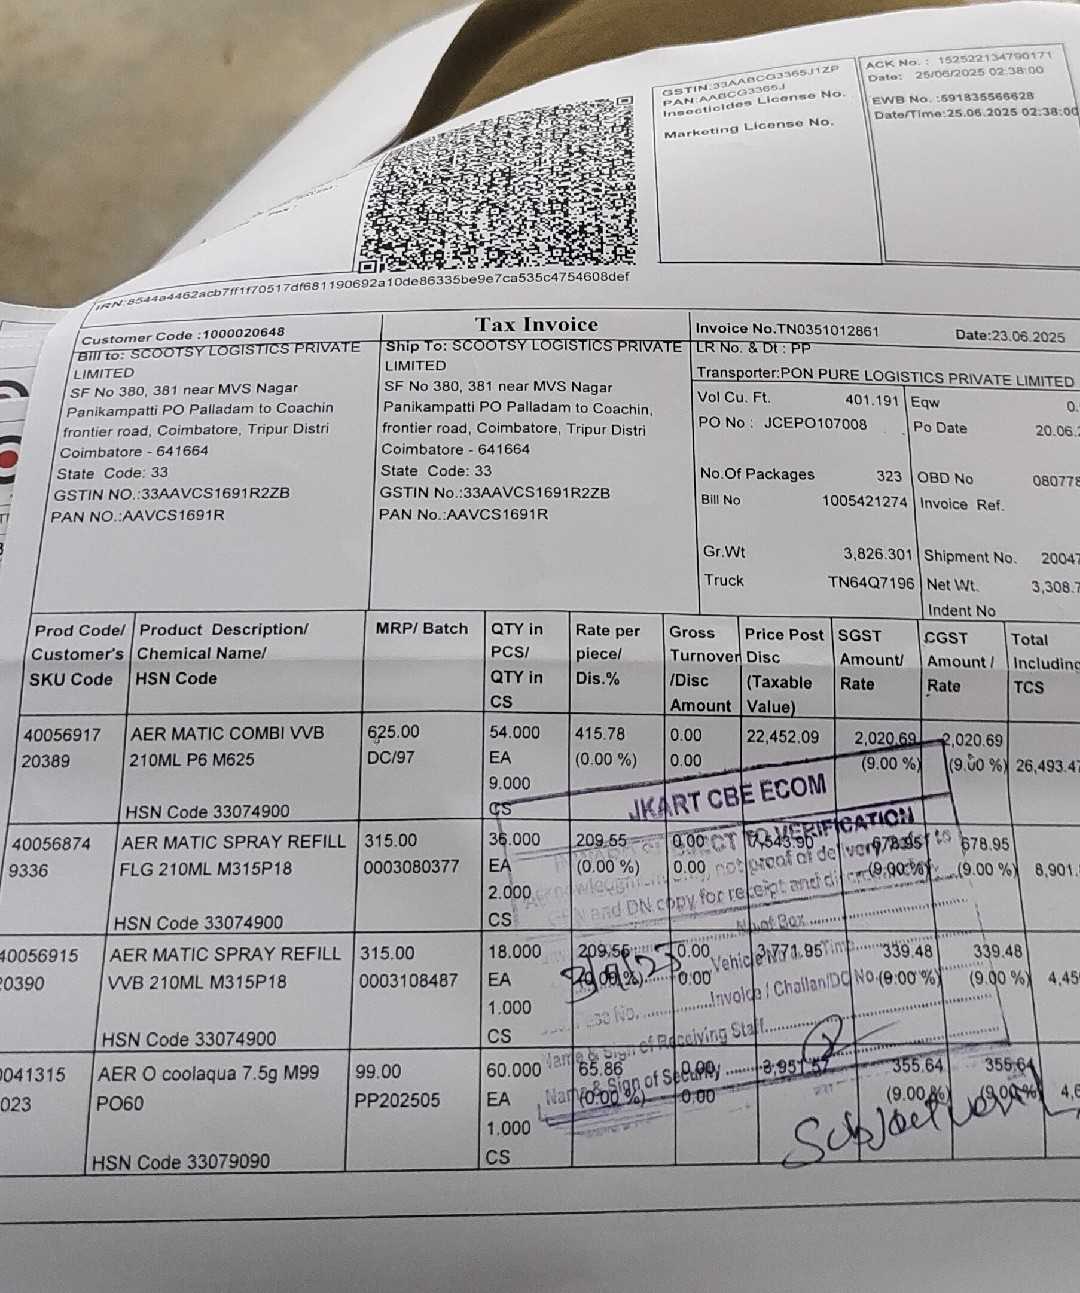 GSTIN:33AABCG3365J1ZP
PAN:AABCG3365J
Insecticides License No.
Marketing License No.
ACK No. : 152522134790171
Date: 25/06/2025 02:38:00
EWB No. :591835566628
Date/Time:25.06.2025 02:38:00
IRN:8544a4462acb7ff1f70517df681190692a10de86335be9e7ca535c4754608def
Customer Code :1000020648
Tax Invoice
Invoice No.TN0351012861 Date:23.06.2025
Bill to: SCOOTSY LOGISTICS PRIVATE
LIMITED
SF No 380, 381 near MVS Nagar
Panikampatti PO Palladam to Coachin
frontier road, Coimbatore, Tripur Distri
Coimbatore - 641664
State Code: 33
GSTIN NO.:33AAVCS1691R2ZB
PAN NO.:AAVCS1691R
Ship To: SCOOTSY LOGISTICS PRIVATE
LIMITED
SF No 380, 381 near MVS Nagar
Panikampatti PO Palladam to Coachin,
frontier road, Coimbatore, Tripur Distri
Coimbatore - 641664
State Code: 33
GSTIN NO.:33AAVCS1691R2ZB
PAN No.:AAVCS1691R
LR No. & Dt : PP
Transporter:PON PURE LOGISTICS PRIVATE LIMITED
Vol Cu. Ft. 401.191 Eqw 0.
PO No : JCEPO107008 Po Date 20.06.
No.Of Packages 323 OBD No 080778
Bill No 1005421274 Invoice Ref.
Gr.Wt 3,826.301 Shipment No. 20047
Truck TN64Q7196 Net Wt. 3,308.7
Indent No
Prod Code/ Product Description/ MRP/ Batch QTY in Rate per Gross Price Post SGST CGST Total
Customer's Chemical Name/ PCS/ piece/ Turnover Disc Amount/ Amount / Including
SKU Code HSN Code QTY in Dis.% /Disc (Taxable Rate Rate TCS
CS Amount Value)
40056917 AER MATIC COMBI VVB 625.00 54.000 415.78 0.00 22,452.09 2,020.69 2,020.69
20389 210ML P6 M625 DC/97 EA (0.00 %) 0.00 (9.00 %) (9.00 %) 26,493.47
9.000
HSN Code 33074900 CS
40056874 AER MATIC SPRAY REFILL 315.00 36.000 209.55 0.00 7,543.90 678.95 678.95
9336 FLG 210ML M315P18 0003080377 EA (0.00 %) 0.00 (9.00 %) (9.00 %) 8,901.
2.000
HSN Code 33074900 CS
40056915 AER MATIC SPRAY REFILL 315.00 18.000 209.55 0.00 3,771.95 339.48 339.48
20390 VVB 210ML M315P18 0003108487 EA 0.00 (9.00 %) (9.00 %) 4,45
1.000
HSN Code 33074900 CS
0041315 AER O coolaqua 7.5g M99 99.00 60.000 65.86 0.00 3,951.57 355.64 355.64
023 PO60 PP202505 EA (0.00 %) 0.00 (9.00 %) (9.00 %) 4,6
1.000
HSN Code 33079090 CS
JKART CBE ECOM
TO VERIFICATION
not proof of delivery
and DN copy for receipt and
No.of Box
Vehicle No Time
Invoice / Challan/DC No.
Name & Sign of Receiving Staff
Name & Sign of Security